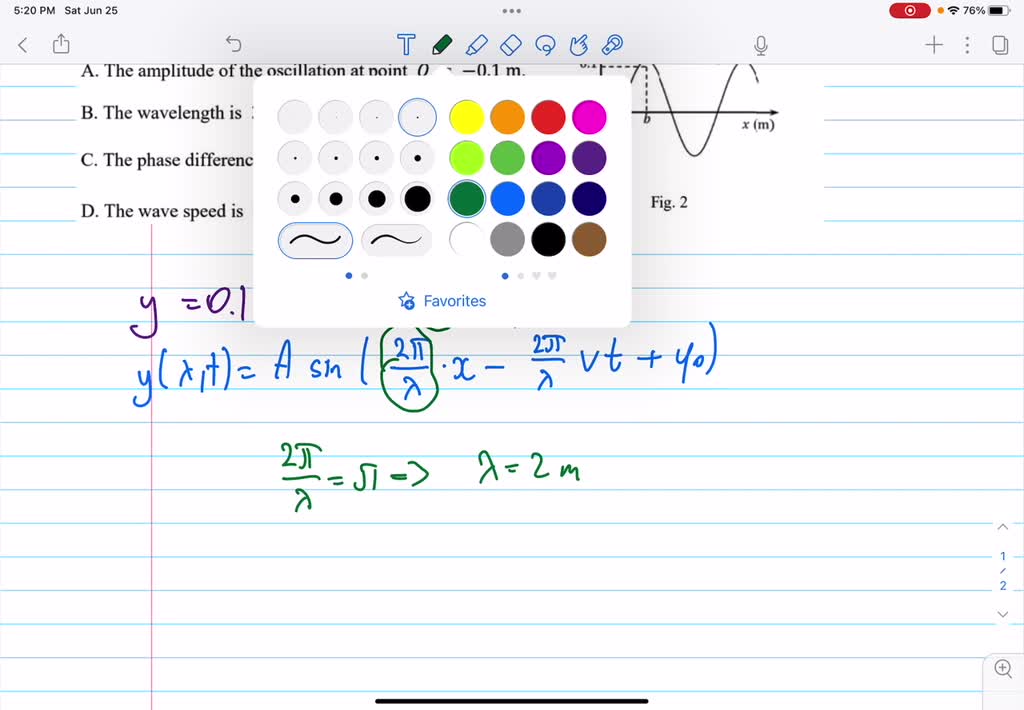 5:20 PM Sat Jun 25 76%
A. The amplitude of the oscillation at point O −0.1 m.
B. The wavelength is
b
x (m)
C. The phase differenc
D. The wave speed is
Fig. 2
Favorites
y = 0.1
y(x,t) = A sin ( 2π/λ · x − 2π/λ vt + φ0 )
2π/λ = π => λ = 2 m
1
/
2